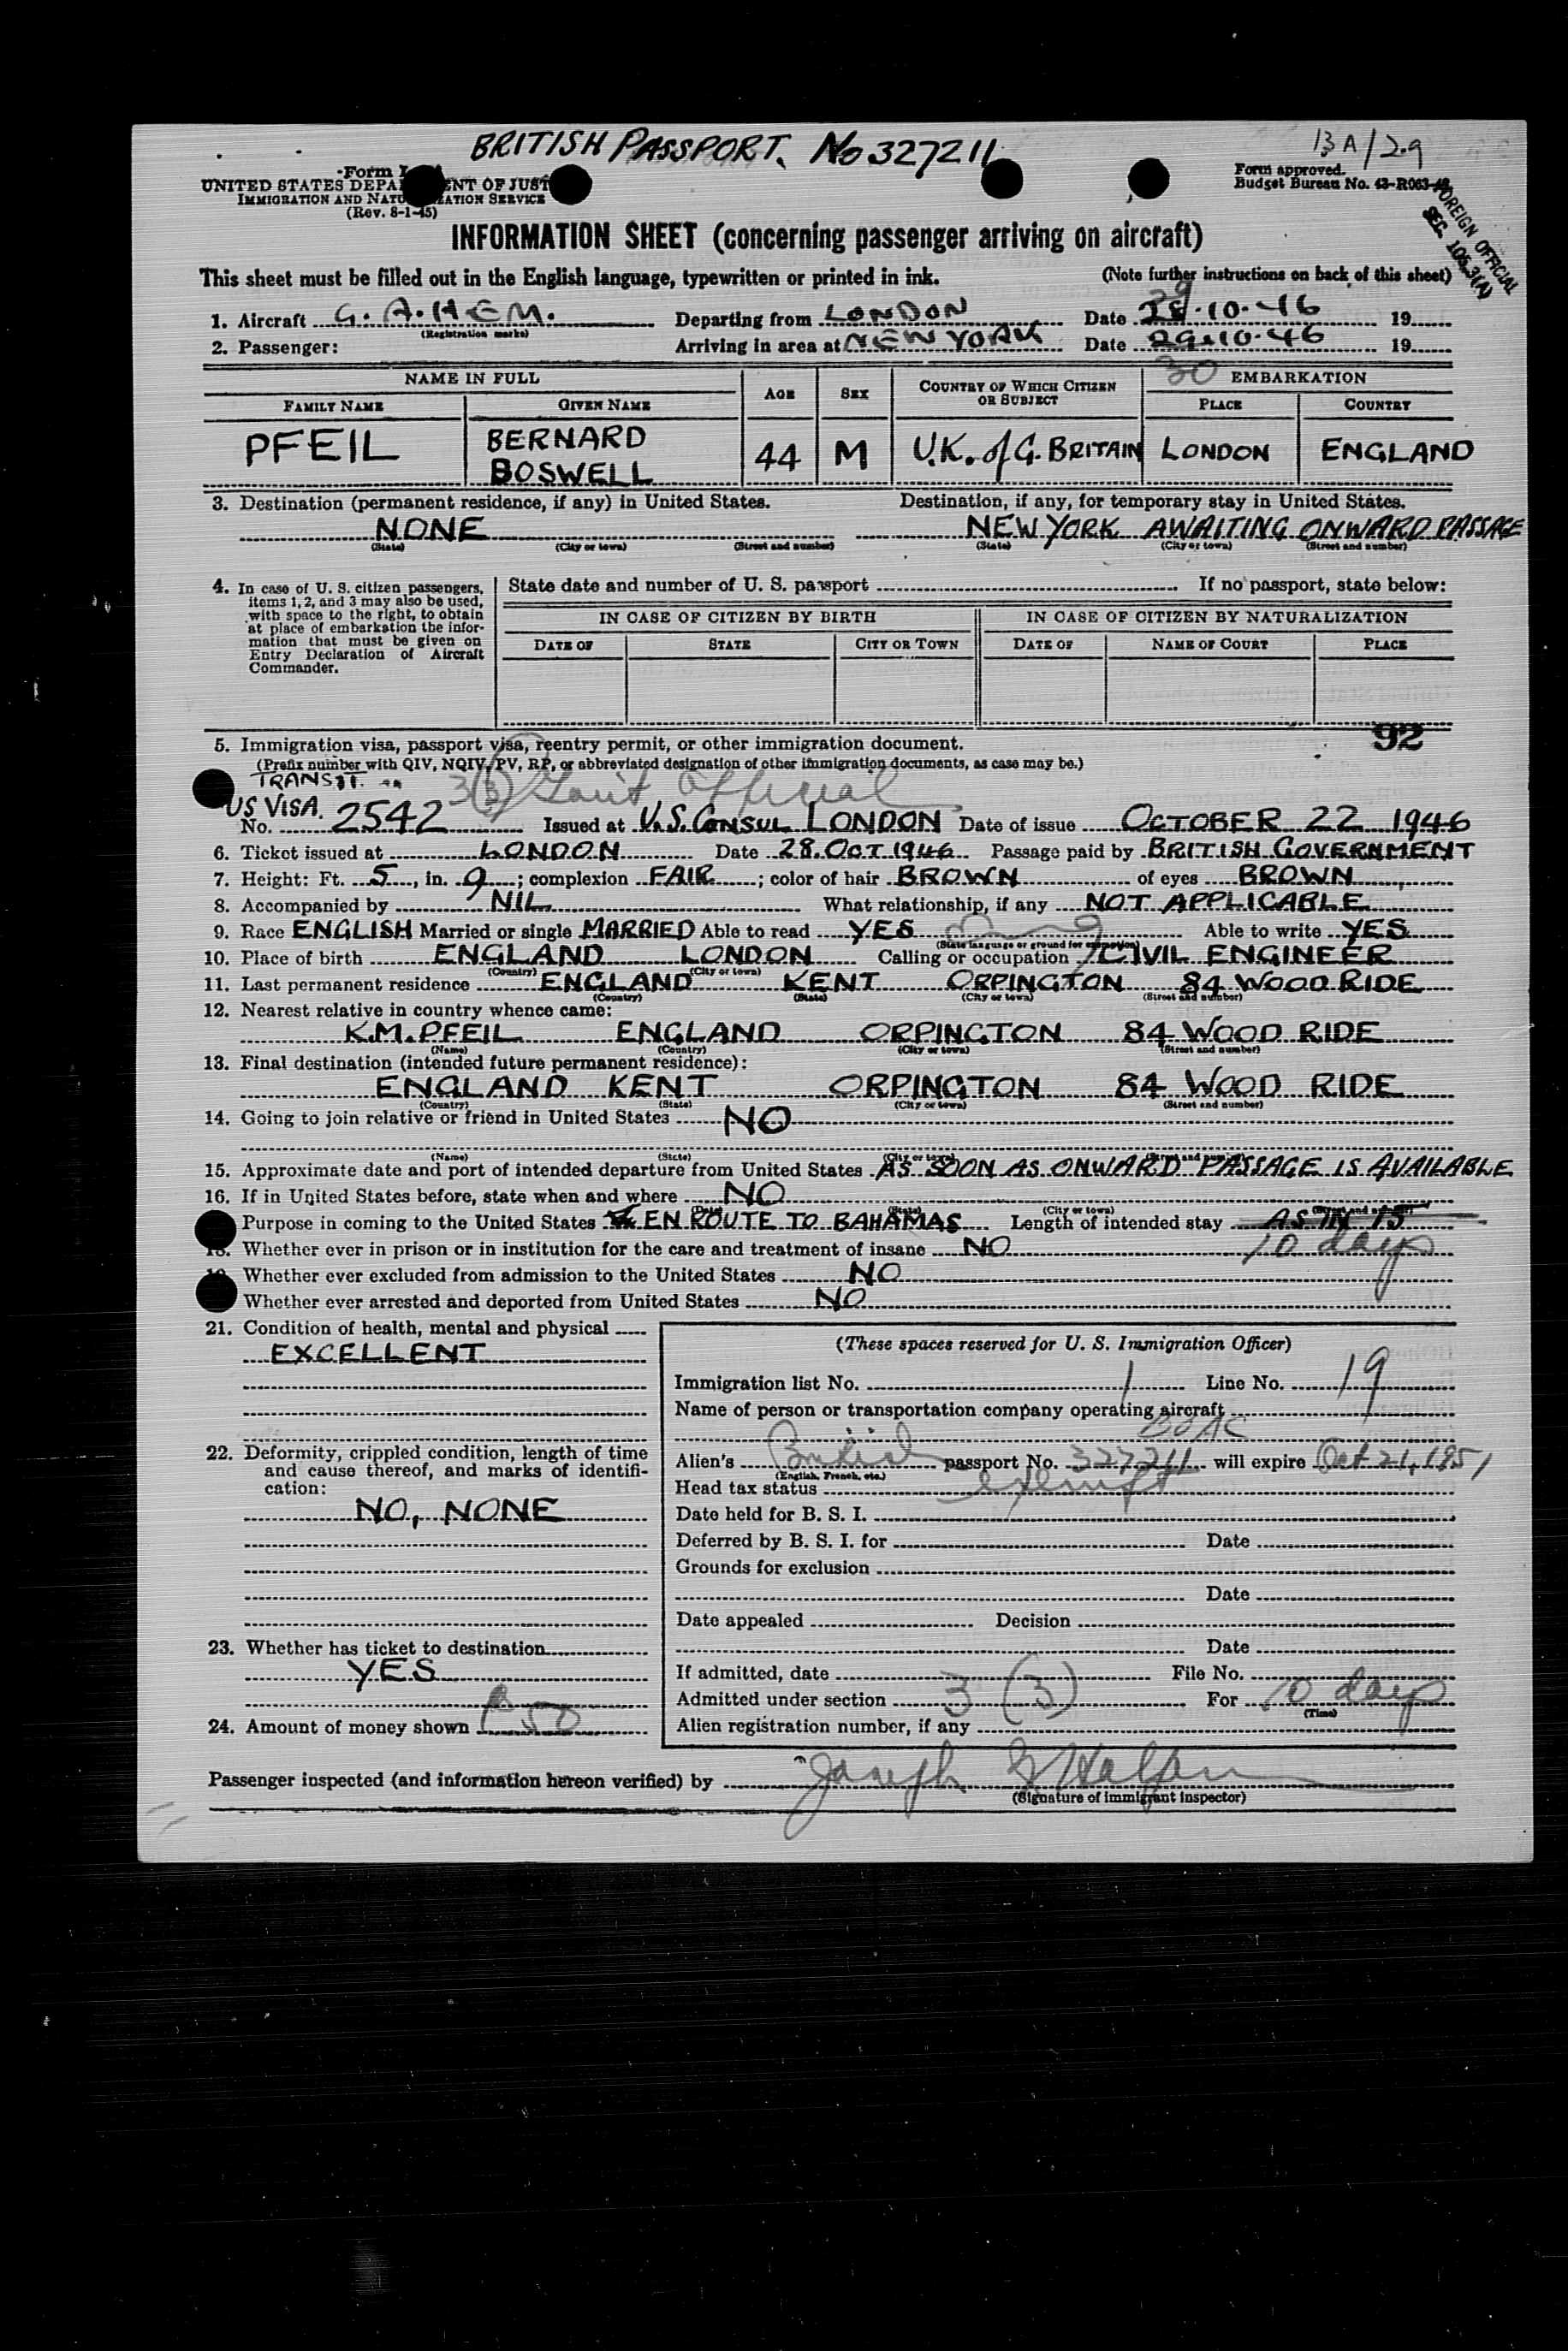 BRITISH PASSPORT. No 327211
13A/29
Form
UNITED STATES DEPA ENT OF JUST
IMMIGRATION AND NATU ZATION SERVICE
(Rev. 8-1-45)
Form approved.
Budget Bureau No. 43-R063-
FOREIGN OFFICIAL
SEC. 105.3(A)
INFORMATION SHEET (concerning passenger arriving on aircraft)
This sheet must be filled out in the English language, typewritten or printed in ink. (Note further instructions on back of this sheet)
1. Aircraft G.A.HEM. Departing from LONDON Date 28.10.46 19
29
(Registration marks)
2. Passenger: Arriving in area at NEW YORK Date 29.10.46 19
30
NAME IN FULL AGE SEX COUNTRY OF WHICH CITIZEN OR SUBJECT EMBARKATION
FAMILY NAME GIVEN NAME PLACE COUNTRY
PFEIL BERNARD BOSWELL 44 M U.K. of G. BRITAIN LONDON ENGLAND
3. Destination (permanent residence, if any) in United States. Destination, if any, for temporary stay in United States.
NONE NEW YORK AWAITING ONWARD PASSAGE
(State) (City or town) (Street and number) (State) (City or town) (Street and number)
4. In case of U. S. citizen passengers, items 1, 2, and 3 may also be used, with space to the right, to obtain at place of embarkation the information that must be given on Entry Declaration of Aircraft Commander.
State date and number of U. S. passport If no passport, state below:
IN CASE OF CITIZEN BY BIRTH IN CASE OF CITIZEN BY NATURALIZATION
DATE OF STATE CITY OR TOWN DATE OF NAME OF COURT PLACE
92
5. Immigration visa, passport visa, reentry permit, or other immigration document.
(Prefix number with QIV, NQIV, PV, RP, or abbreviated designation of other immigration documents, as case may be.)
TRANSIT.
3(3) Govt Official
US VISA.
No. 2542 Issued at U.S. CONSUL LONDON Date of issue OCTOBER 22 1946
6. Ticket issued at LONDON Date 28.OCT 1946 Passage paid by BRITISH GOVERNMENT
7. Height: Ft. 5, in. 9; complexion FAIR; color of hair BROWN of eyes BROWN
8. Accompanied by NIL What relationship, if any NOT APPLICABLE
9. Race ENGLISH Married or single MARRIED Able to read YES Able to write YES
(State language or ground for exemption)
10. Place of birth ENGLAND LONDON Calling or occupation CIVIL ENGINEER
(Country) (City or town)
11. Last permanent residence ENGLAND KENT ORPINGTON 84 WOOD RIDE
(Country) (State) (City or town) (Street and number)
12. Nearest relative in country whence came:
K.M. PFEIL ENGLAND ORPINGTON 84 WOOD RIDE
(Name) (Country) (City or town) (Street and number)
13. Final destination (intended future permanent residence):
ENGLAND KENT ORPINGTON 84 WOOD RIDE
(Country) (State) (City or town) (Street and number)
14. Going to join relative or friend in United States NO
(Name) (State) (City or town) (Street and number)
15. Approximate date and port of intended departure from United States AS SOON AS ONWARD PASSAGE IS AVAILABLE
16. If in United States before, state when and where NO
(Date) (State) (City or town) (Street and number)
Purpose in coming to the United States EN ROUTE TO BAHAMAS Length of intended stay AS IN 15
18. Whether ever in prison or in institution for the care and treatment of insane NO 10 days
Whether ever excluded from admission to the United States NO
Whether ever arrested and deported from United States NO
21. Condition of health, mental and physical
EXCELLENT
22. Deformity, crippled condition, length of time and cause thereof, and marks of identification:
NO, NONE
23. Whether has ticket to destination
YES
24. Amount of money shown 50
(These spaces reserved for U. S. Immigration Officer)
Immigration list No. 1 Line No. 19
Name of person or transportation company operating aircraft
BOAC
Alien's British passport No. 327211 will expire Oct 21, 1951
(English, French, etc.)
Head tax status exempt
Date held for B. S. I.
Deferred by B. S. I. for Date
Grounds for exclusion
Date
Date appealed Decision
Date
If admitted, date File No.
Admitted under section 3 (3) For 10 days
(Time)
Alien registration number, if any
Passenger inspected (and information hereon verified) by Joseph
(Signature of immigrant inspector)